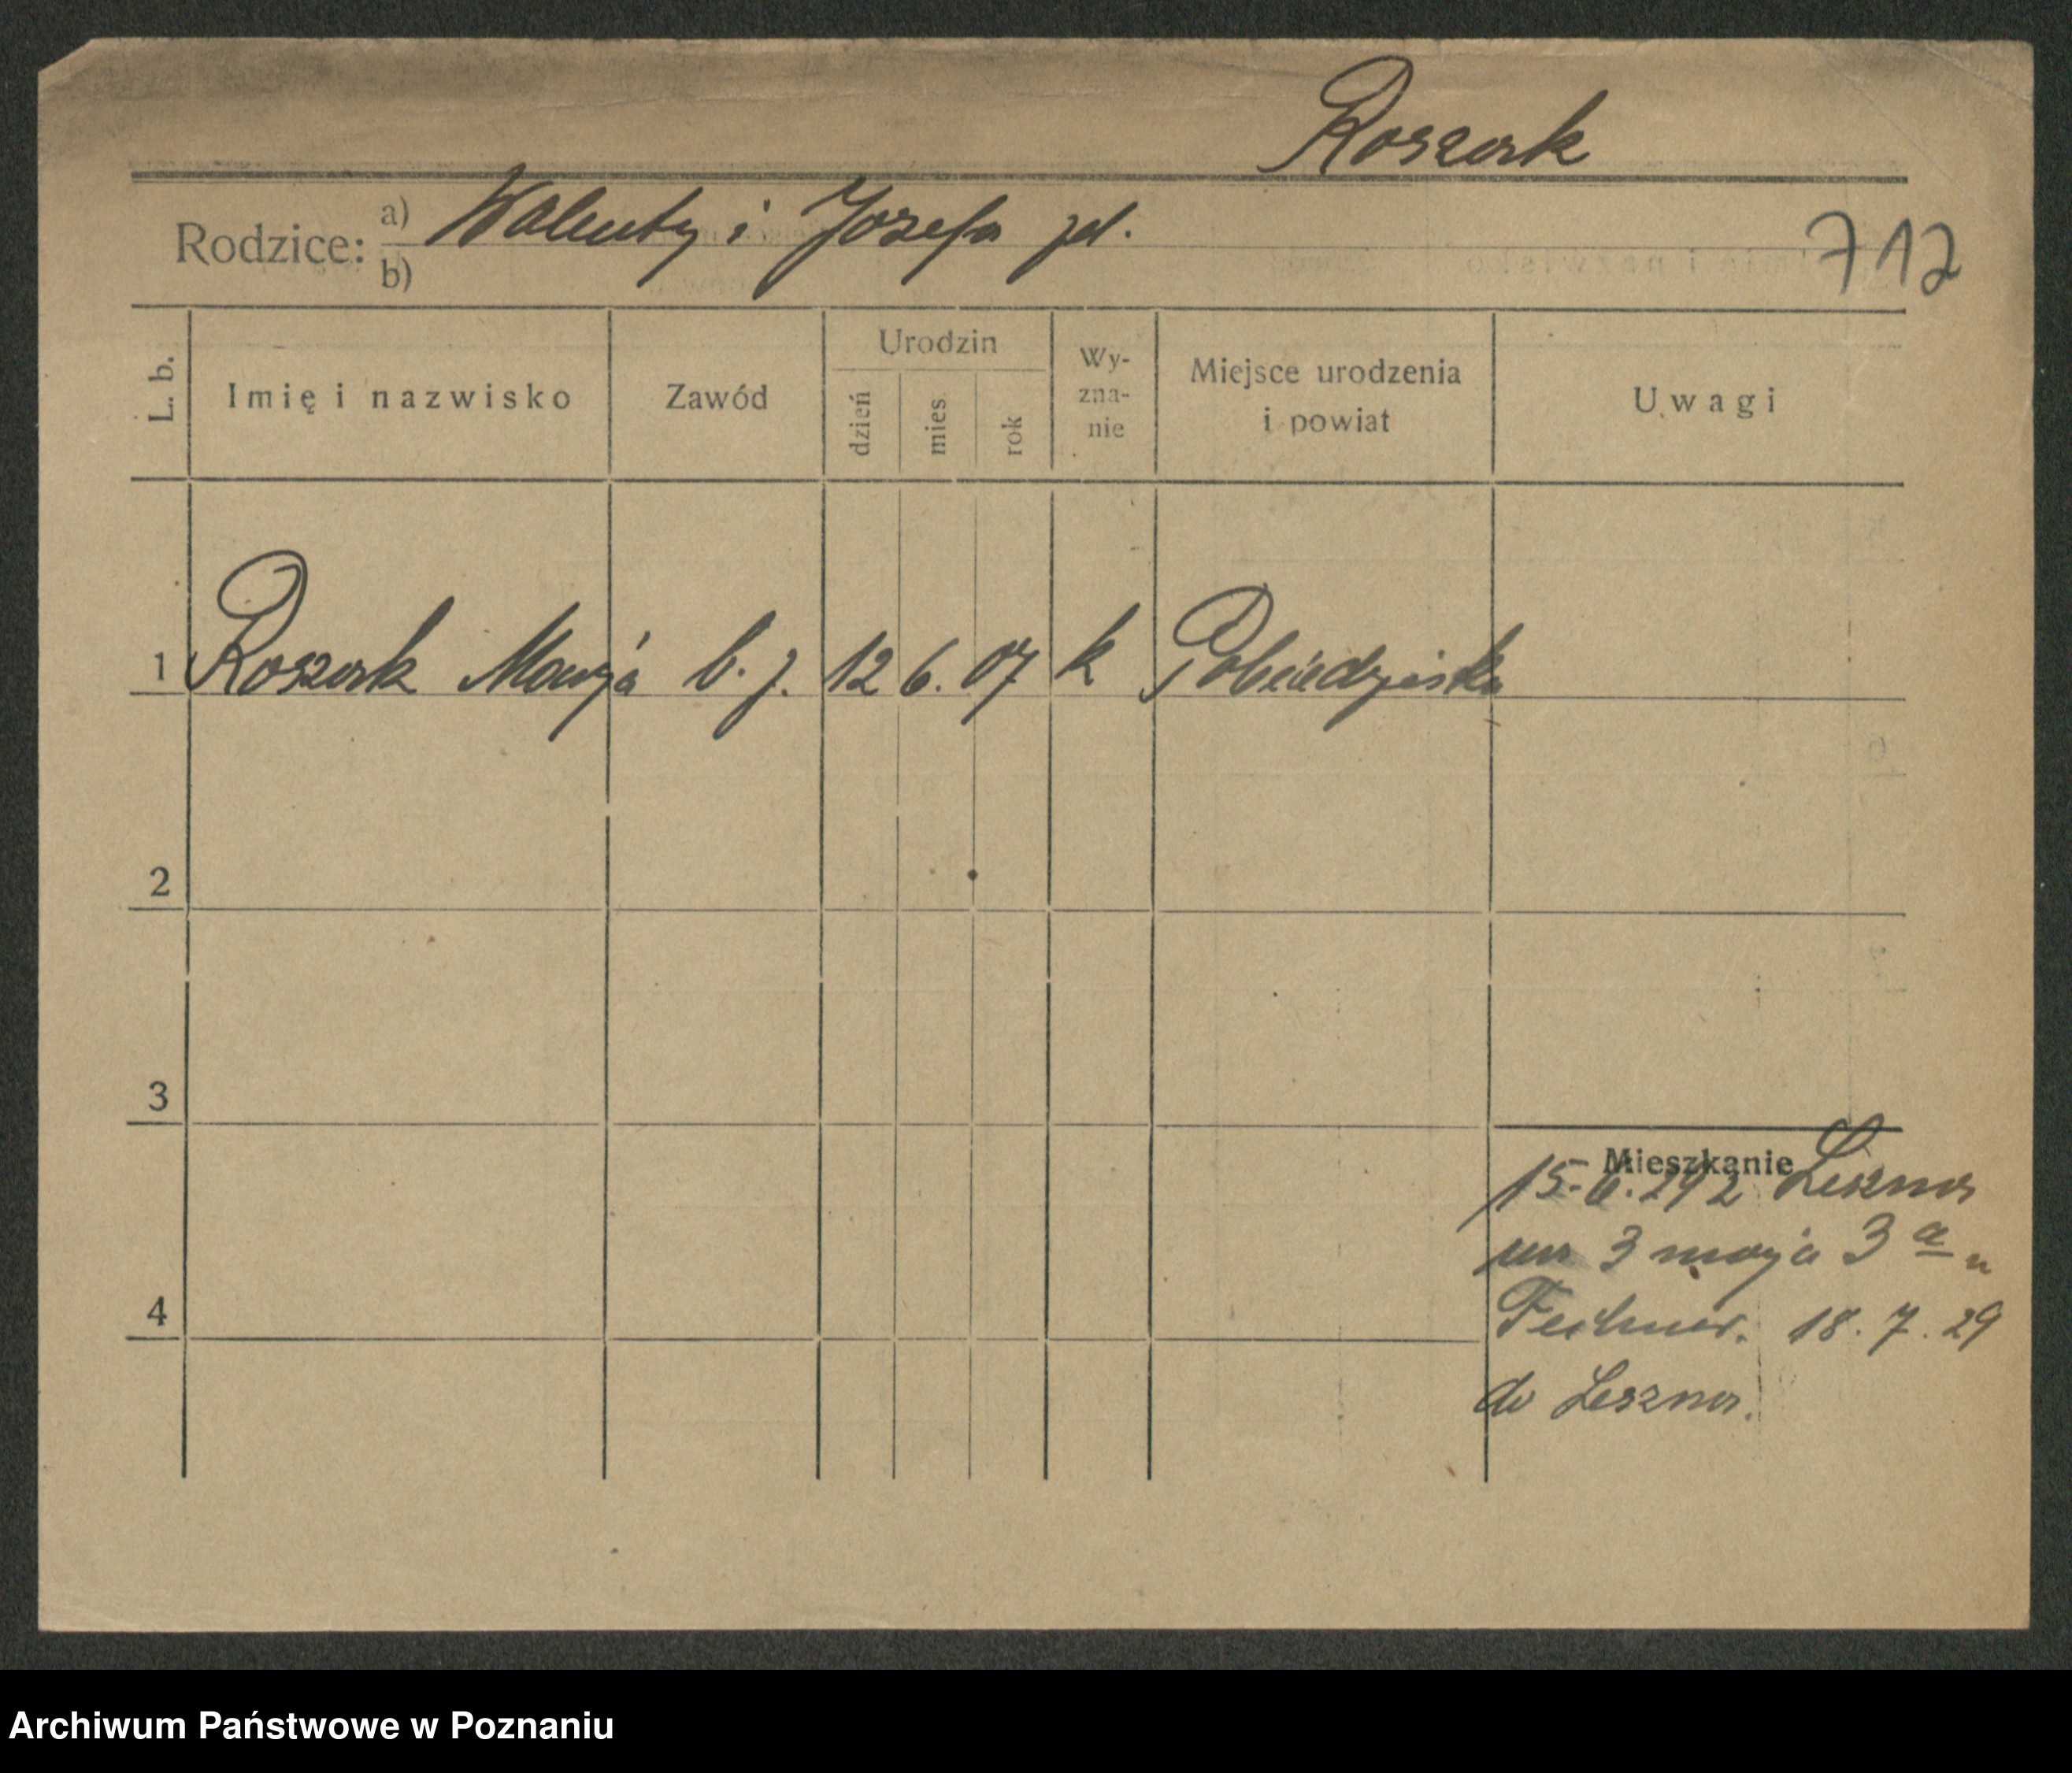 Roszak
Rodzice: a) Walenty i Józefa
b)
712
L. b.
Imię i nazwisko
Zawód
Urodzin
dzień
mies.
rok
Wy-
zna-
nie
Miejsce urodzenia
i powiat
Uwagi
1 Roszak Marja b. z. 12 6. 07 k Pobiedziska
2
3
Mieszkanie
15. 6. 292 Leszno
3 maja 3 a u
4
Fechner. 18. 7. 29
do Leszna.
Archiwum Państwowe w Poznaniu